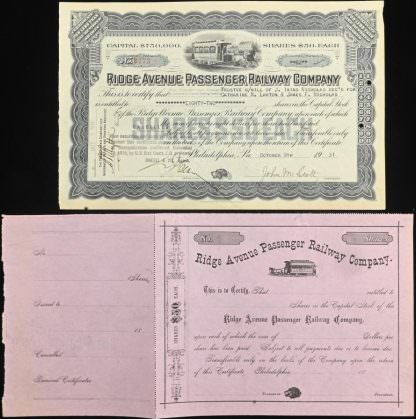 CAPITAL $750,000. SHARES $50. EACH
RIDGE AVENUE PASSENGER RAILWAY COMPANY
This is to certify that
TRUSTEE U/WILL OF J. DEC'D FOR
CATHARINE N. LAWTON & JAMES F. NICHOLAS
is entitled to EIGHTY-TWO shares in the Capital Stock
of the Ridge Avenue Passenger Railway Company upon each of which
SHARES $50 EACH
Philadelphia, Pa. OCTOBER 19 31
John M. Scott
No.
Shares
Issued to
18
Cancelled
Renewed Certificates
SHARES $50 EACH
No.
Shares
Ridge Avenue Passenger Railway Company.
This is to Certify, That entitled to
Shares in the Capital Stock of the
Ridge Avenue Passenger Railway Company,
upon each of which the sum of Dollars per
share has been paid. Subject to all payments due or to become due.
Transferable only on the books of the Company upon the return
of this Certificate. Philadelphia 18
Treasurer President